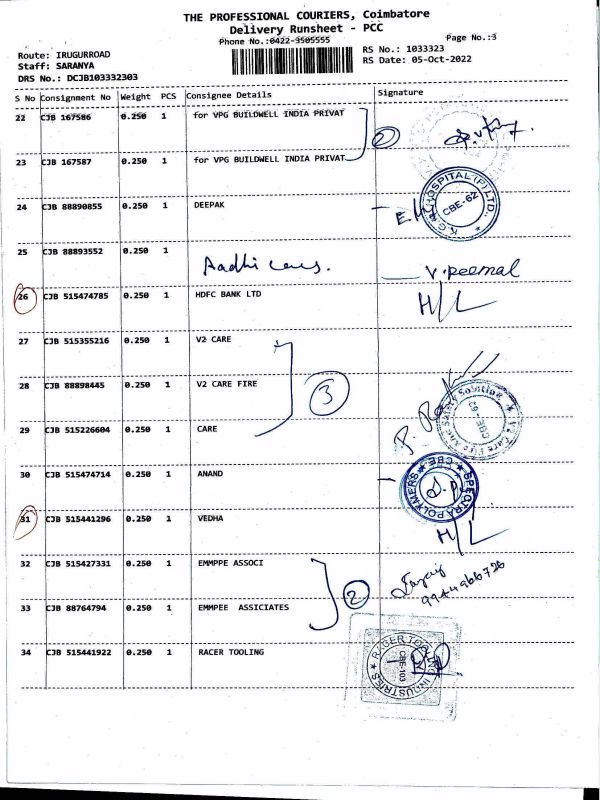 THE PROFESSIONAL COURIERS, Coimbatore
Delivery Runsheet - PCC
Phone No.:0422-3505555
Page No.:3
Route: IRUGURROAD
RS No.: 1033323
Staff: SARANYA
RS Date: 05-Oct-2022
DRS No.: DCJB103332303
S No Consignment No Weight PCS Consignee Details Signature
22 CJB 167586 0.250 1 for VPG BUILDWELL INDIA PRIVAT
2
23 CJB 167587 0.250 1 for VPG BUILDWELL INDIA PRIVAT
HOSPITAL (P) LTD.
CBE-62
24 CJB 88890855 0.250 1 DEEPAK
25 CJB 88893552 0.250 1
Aadhi
V. Peemal
26 CJB 515474785 0.250 1 HDFC BANK LTD H/L
27 CJB 515355216 0.250 1 V2 CARE
28 CJB 88898445 0.250 1 V2 CARE FIRE
3
V2 Care Fire And Safety Solution
CBE-62
29 CJB 515226604 0.250 1 CARE
30 CJB 515474714 0.250 1 ANAND
SPECTRA POLYMERS CBE
31 CJB 515441296 0.250 1 VEDHA
H/L
32 CJB 515427331 0.250 1 EMMPPE ASSOCI
2
9944966726
33 CJB 88764794 0.250 1 EMMPEE ASSICIATES
34 CJB 515441922 0.250 1 RACER TOOLING
RACER TOOLING INDUSTRIES
CBE-103